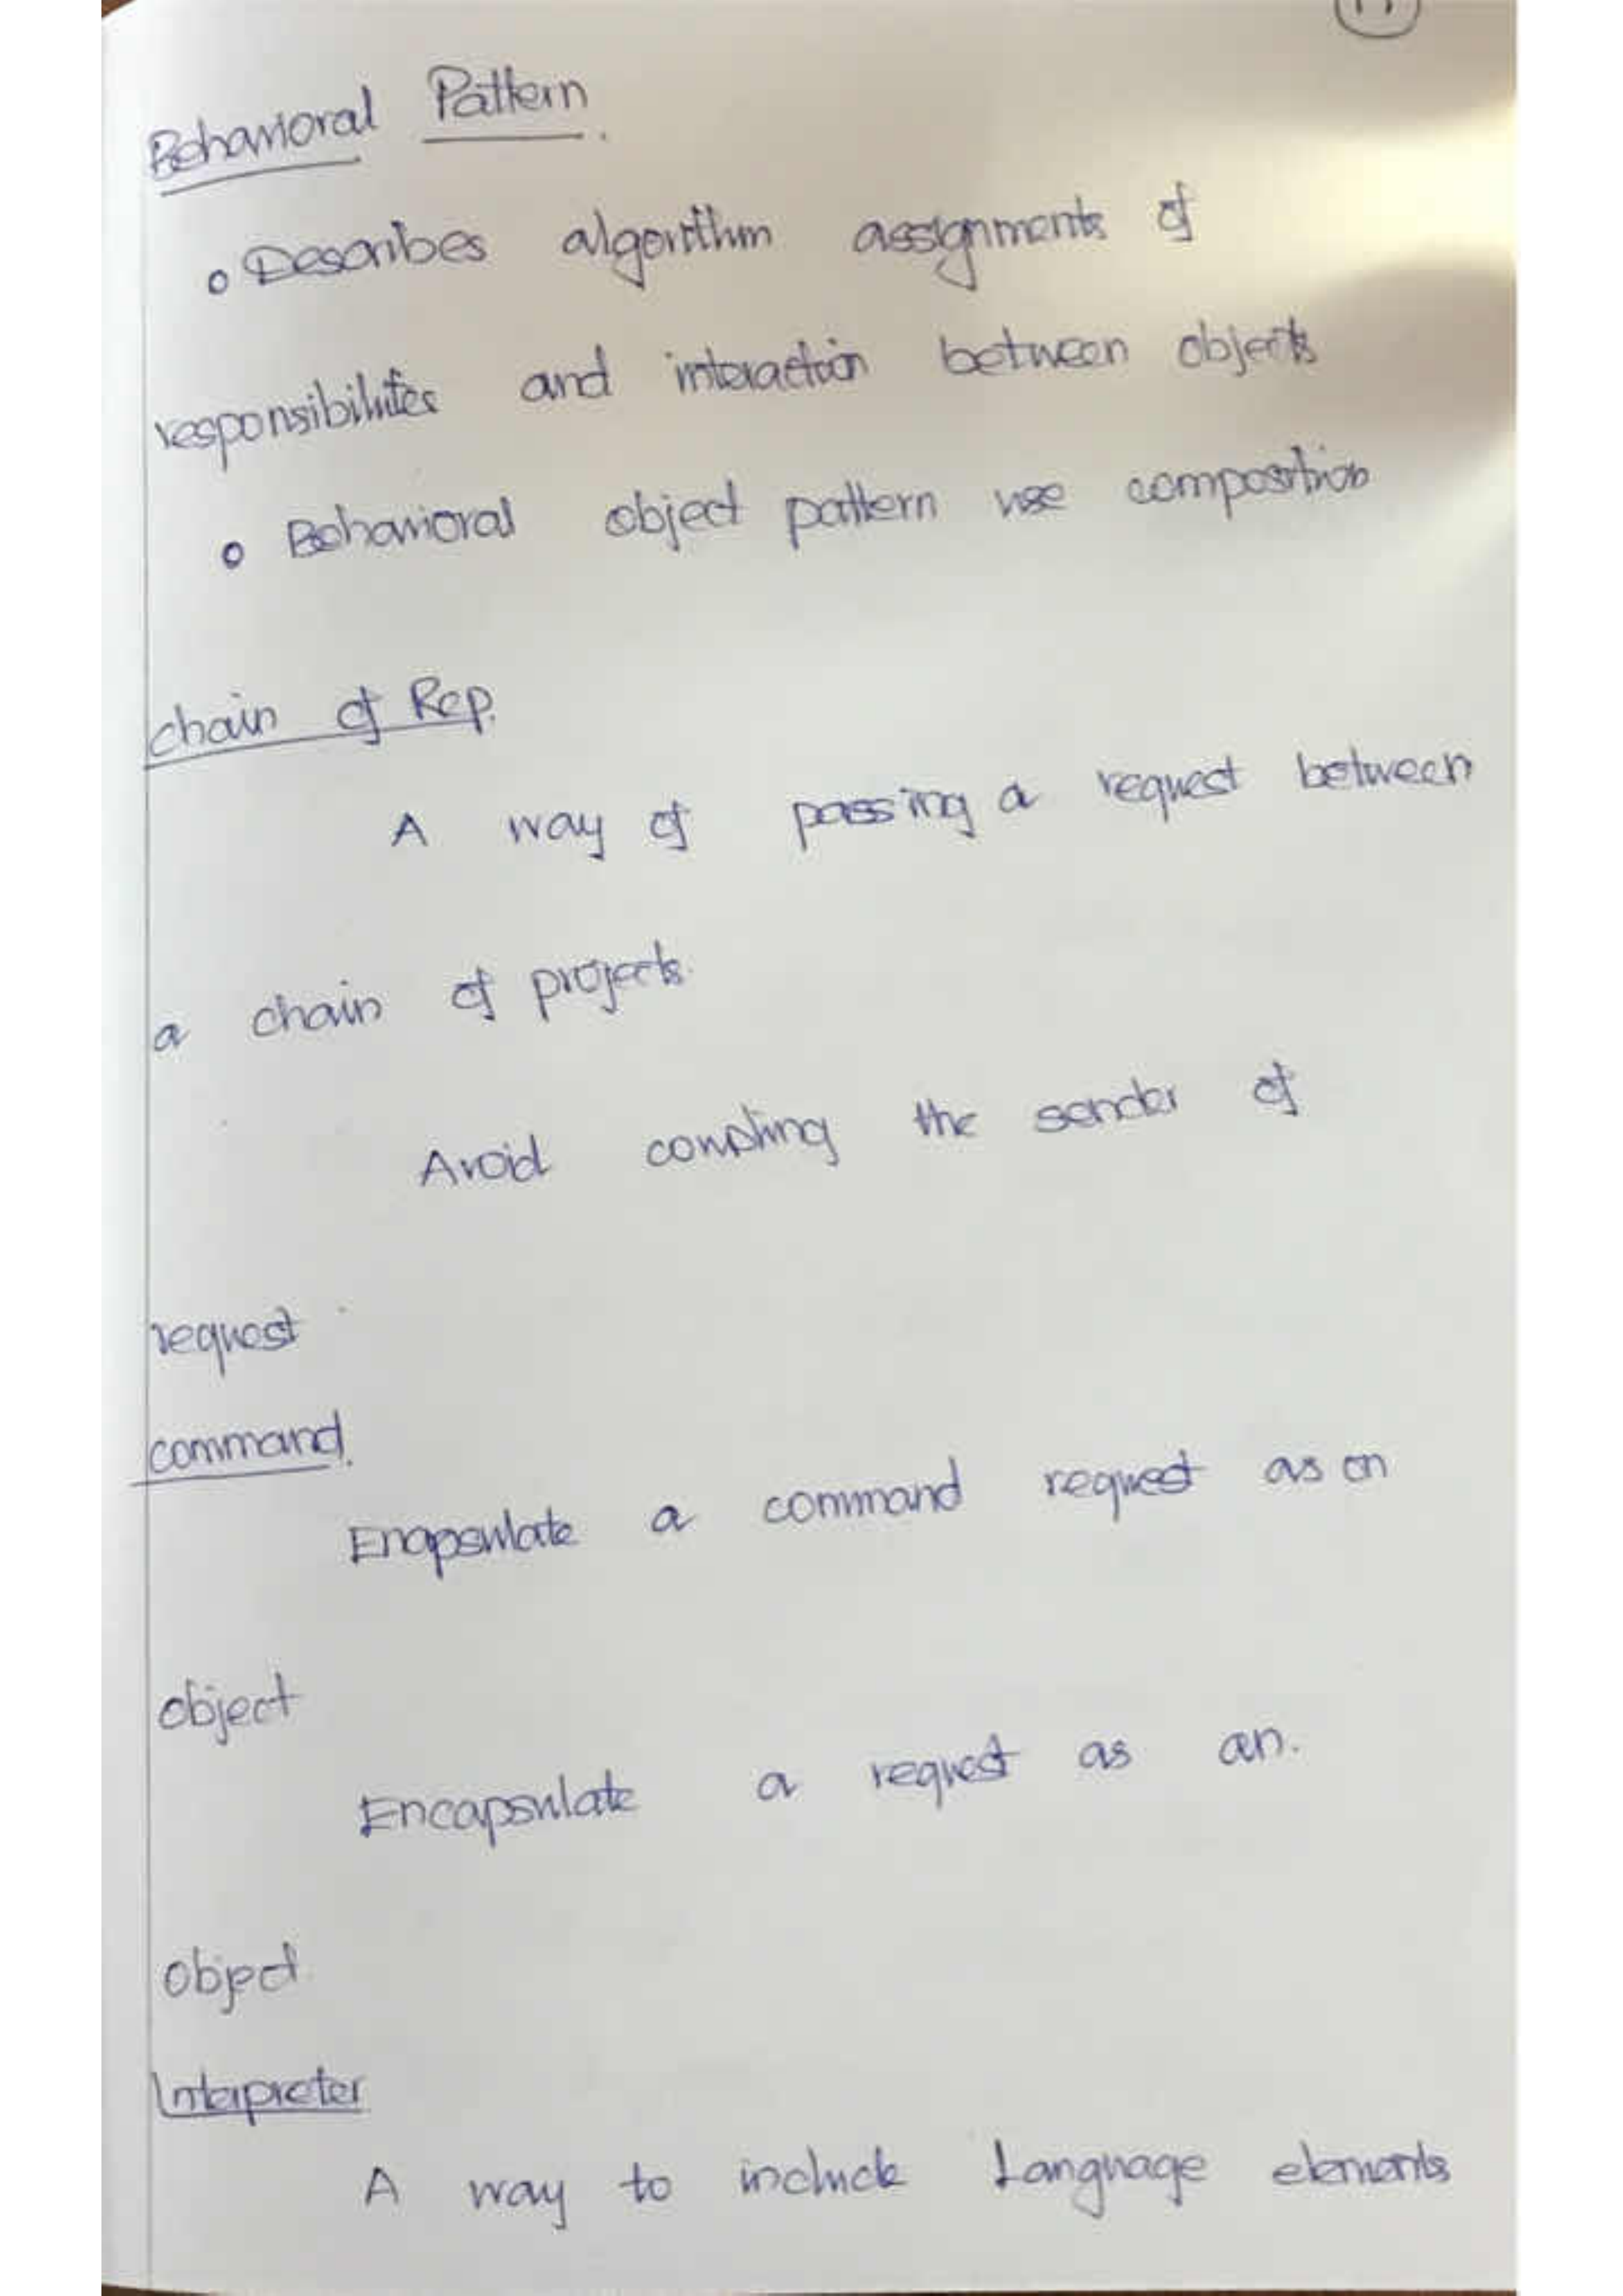 Behavioral Pattern.
o Describes algorithm assignments of
responsibilites and interaction between objects
o Behavioral object pattern use composition
chain of Rep.
A way of passing a request between
a chain of projects.
Avoid coupling the sender of
request
command.
Enapsulate a command request as an
object
Encapsulate a request as an.
object
Interpreter
A way to include Language elements